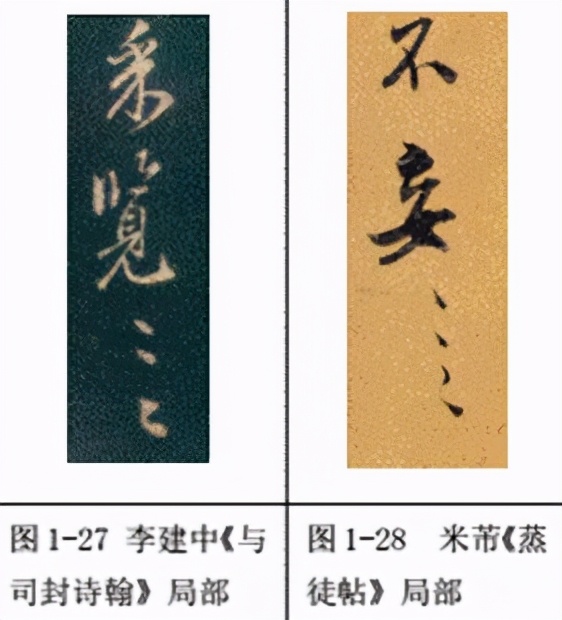 采
覽
不
妄
图1-27 李建中《与
司封诗翰》局部
图1-28 米芾《蒸
徒帖》局部